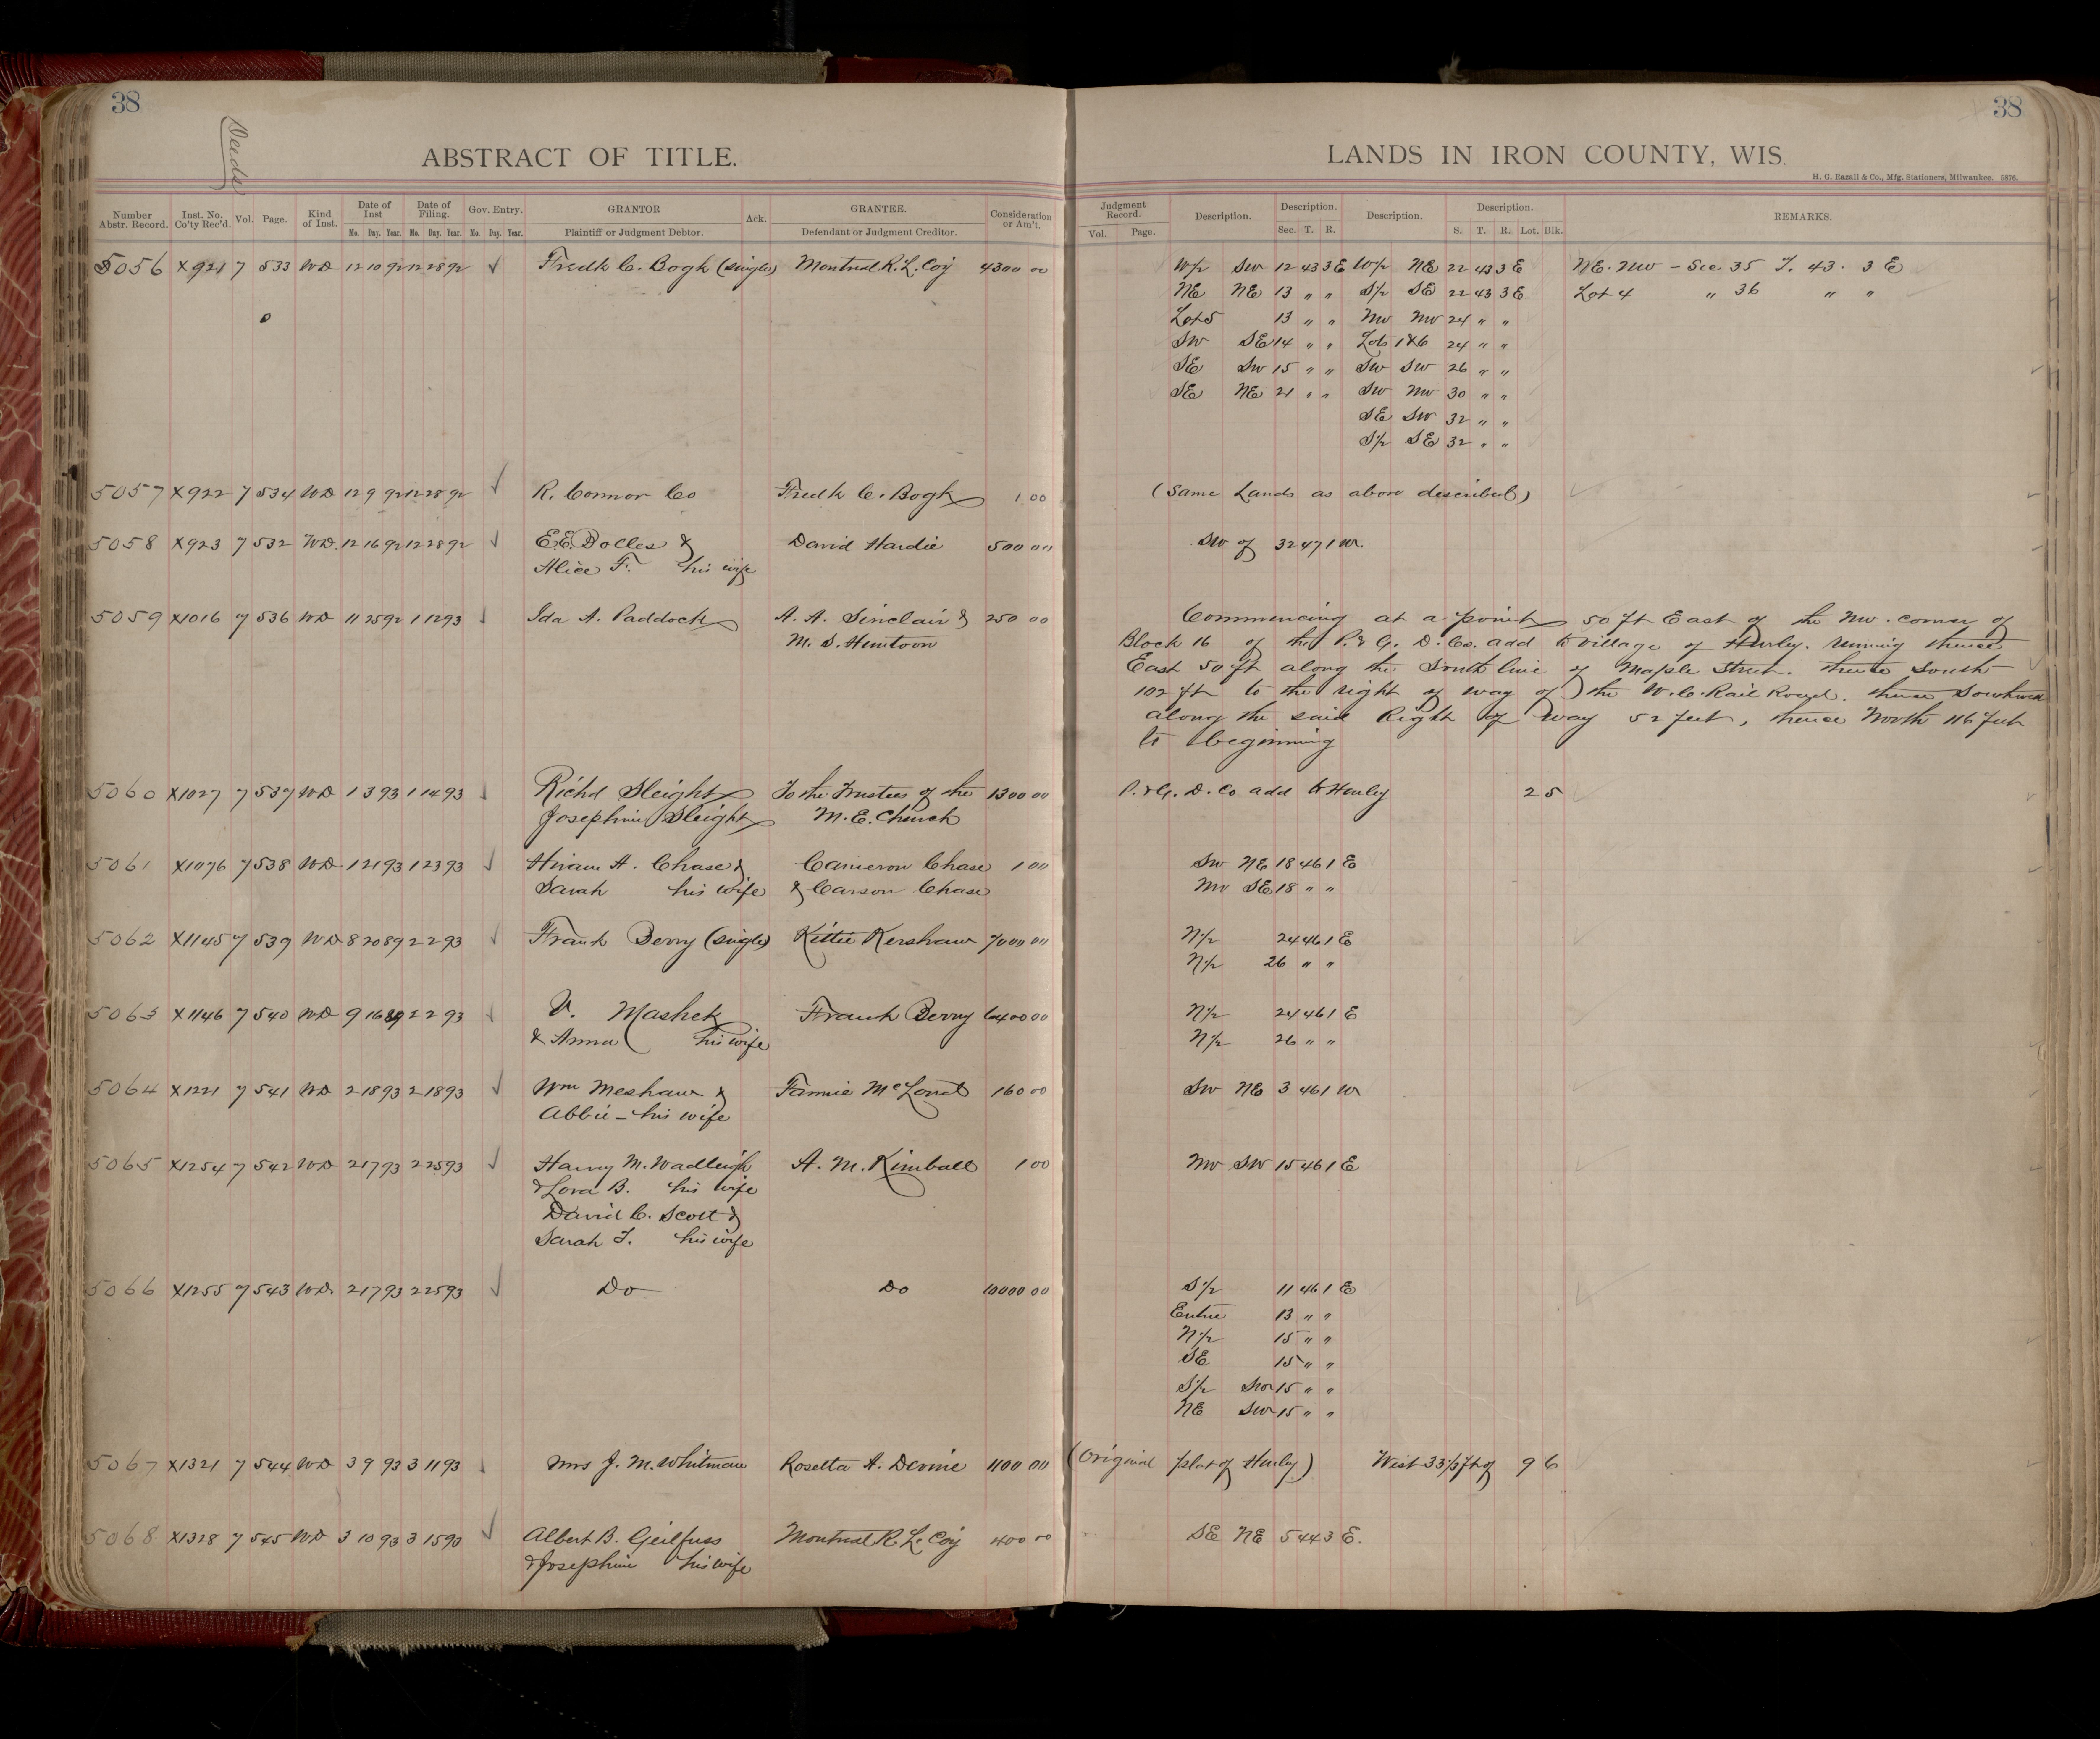 38
38
Deeds
ABSTRACT OF TITLE.
LANDS IN IRON COUNTY, WIS.
H. G. Razall & Co., Mfg. Stationers, Milwaukee. 5876.
Number Abstr. Record. Inst. No. Co'ty Rec'd. Vol. Page. Kind of Inst. Date of Inst Mo. Day. Year. Date of Filing. Mo. Day. Year. Gov. Entry. Mo. Day. Year. GRANTOR Plaintiff or Judgment Debtor. Ack. GRANTEE. Defendant or Judgment Creditor. Consideration or Am't.
Judgment Record. Vol. Page. Description. Description. Sec. T. R. Description. Description. S. T. R. Lot. Blk. REMARKS.
5056 X921 7 533 WD 12 10 92 12 28 92 ✓ Fredk C. Bogk (single) Montreal R. L. Coy 4300 00 W/2 SW 12 43 3 E W/2 NE 22 43 3 E NE. NW - Sec. 35 T. 43. 3 E
NE NE 13 " " S/2 SE 22 43 3 E Lot 4 " 36 " "
Lot 5 13 " " NW NW 24 " "
SW SE 14 " " Lots 1 & 6 24 " "
SE SW 15 " " SW SW 26 " "
SE NE 21 " " SW NW 30 " "
SE SW 32 " "
S/2 SE 32 " "
5057 X922 7 534 WD 12 9 92 12 28 92 ✓ R. Connor Co Fredk C. Bogk 1 00 (Same Lands as above described)
5058 X923 7 532 WD. 12 16 92 12 28 92 ✓ E.E. Bolles & David Hardie 500 00 SW of 32 47 1 W.
Alice F. his wife
5059 X1016 7 536 WD 11 25 92 1 12 93 ✓ Ida A. Paddock A. A. Sinclair & 250 00 Commencing at a point 50 ft East of the NW. corner of
M. S. Block 16 of the P. & G. D. Co. add to Village of Hurley. running thence
East 50 ft along the South line of Maple Street. thence South
102 ft to the right of way of the W. C. Rail Road. thence Southwest
along the said Right of way 52 feet, thence North 116 feet
to beginning
5060 X1027 7 537 WD 1 3 93 1 14 93 ✓ Richd Sleight To the Trustees of the 1300 00 P. & G. D. Co add to Hurley 2 5
Josephine Sleight M. E. Church
5061 X1076 7 538 WD 1 21 93 1 23 93 ✓ Hiram H. Chase & Cameron Chase 1 00 SW NE 18 46 1 E
Sarah his wife & Carson Chase NW SE 18 " "
5062 X1145 7 539 WD 8 20 89 2 2 93 ✓ Frank Berry (single) Kittie Kershaw 7000 00 N/2 24 46 1 E
N/2 26 " "
5063 X1146 7 540 WD 9 16 89 2 2 93 ✓ V. Mashek Frank Berry 6400 00 N/2 24 46 1 E
& Anna his wife N/2 26 " "
5064 X1221 7 541 WD 2 18 93 2 18 93 ✓ Wm Meshaw & Fannie 160 00 SW NE 3 46 1 W
Abbie - his wife
5065 X1254 7 542 WD 2 17 93 2 25 93 ✓ Harvey M. Wadleigh A. M. Kimball 1 00 NW SW 15 46 1 E
& Lora B. his wife
David C. Scott &
Sarah T. his wife
5066 X1255 7 543 WD. 2 17 93 2 25 93 ✓ Do Do 10000 00 S/2 11 46 1 E
Entire 13 " "
N/2 15 " "
SE 15 " "
S/2 SW 15 " "
NE SW 15 " "
5067 X1321 7 544 WD 3 9 93 3 11 93 ✓ Mrs J. M. Whitman Rosetta A. Devine 1100 00 (Original plat of Hurley) West 33 1/3 ft of 9 6
5068 X1328 7 545 WD 3 10 93 3 15 93 ✓ Albert B. Geilfuss Montreal R. L. Coy 400 00 SE NE 5 44 3 E.
& Josephine his wife